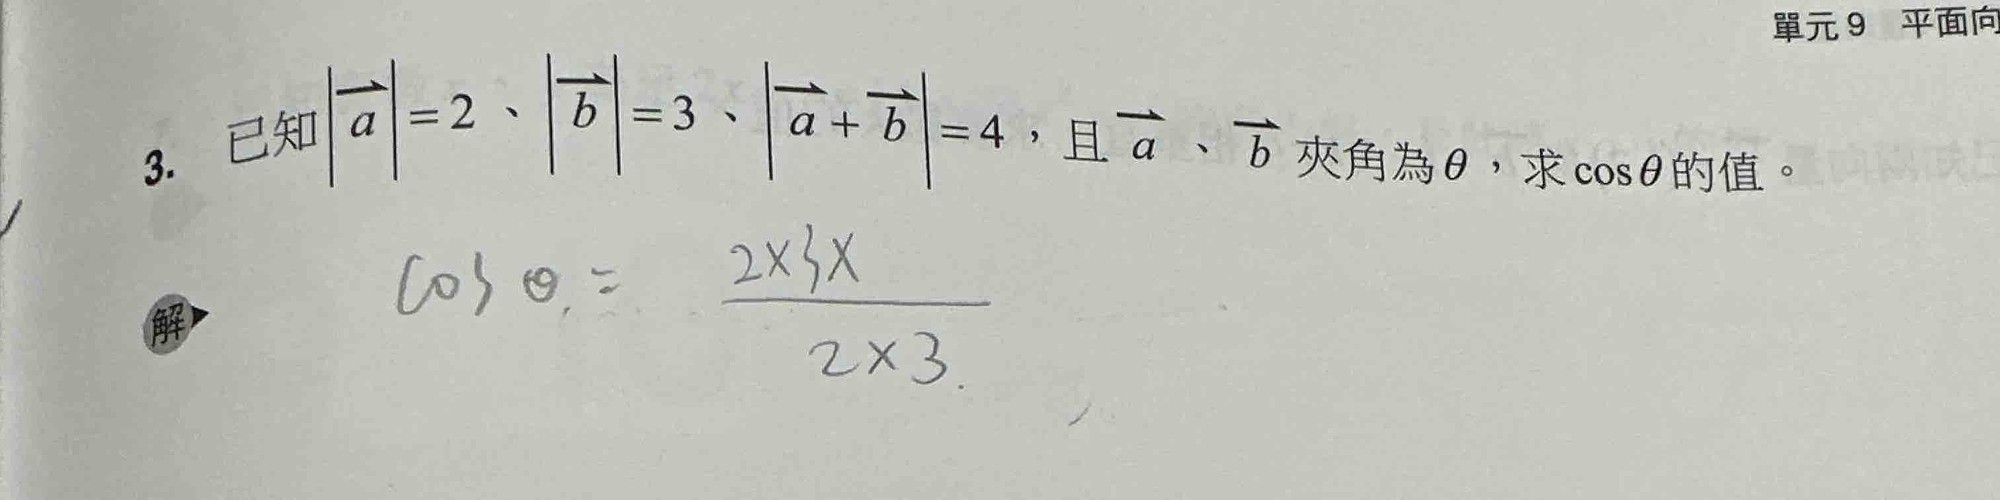 單元9 平面向
3. 已知|a⃗|=2、|b⃗|=3、|a⃗+b⃗|=4，且a⃗、b⃗夾角為θ，求cosθ的值。
解 cosθ = (2×3×)/(2×3)